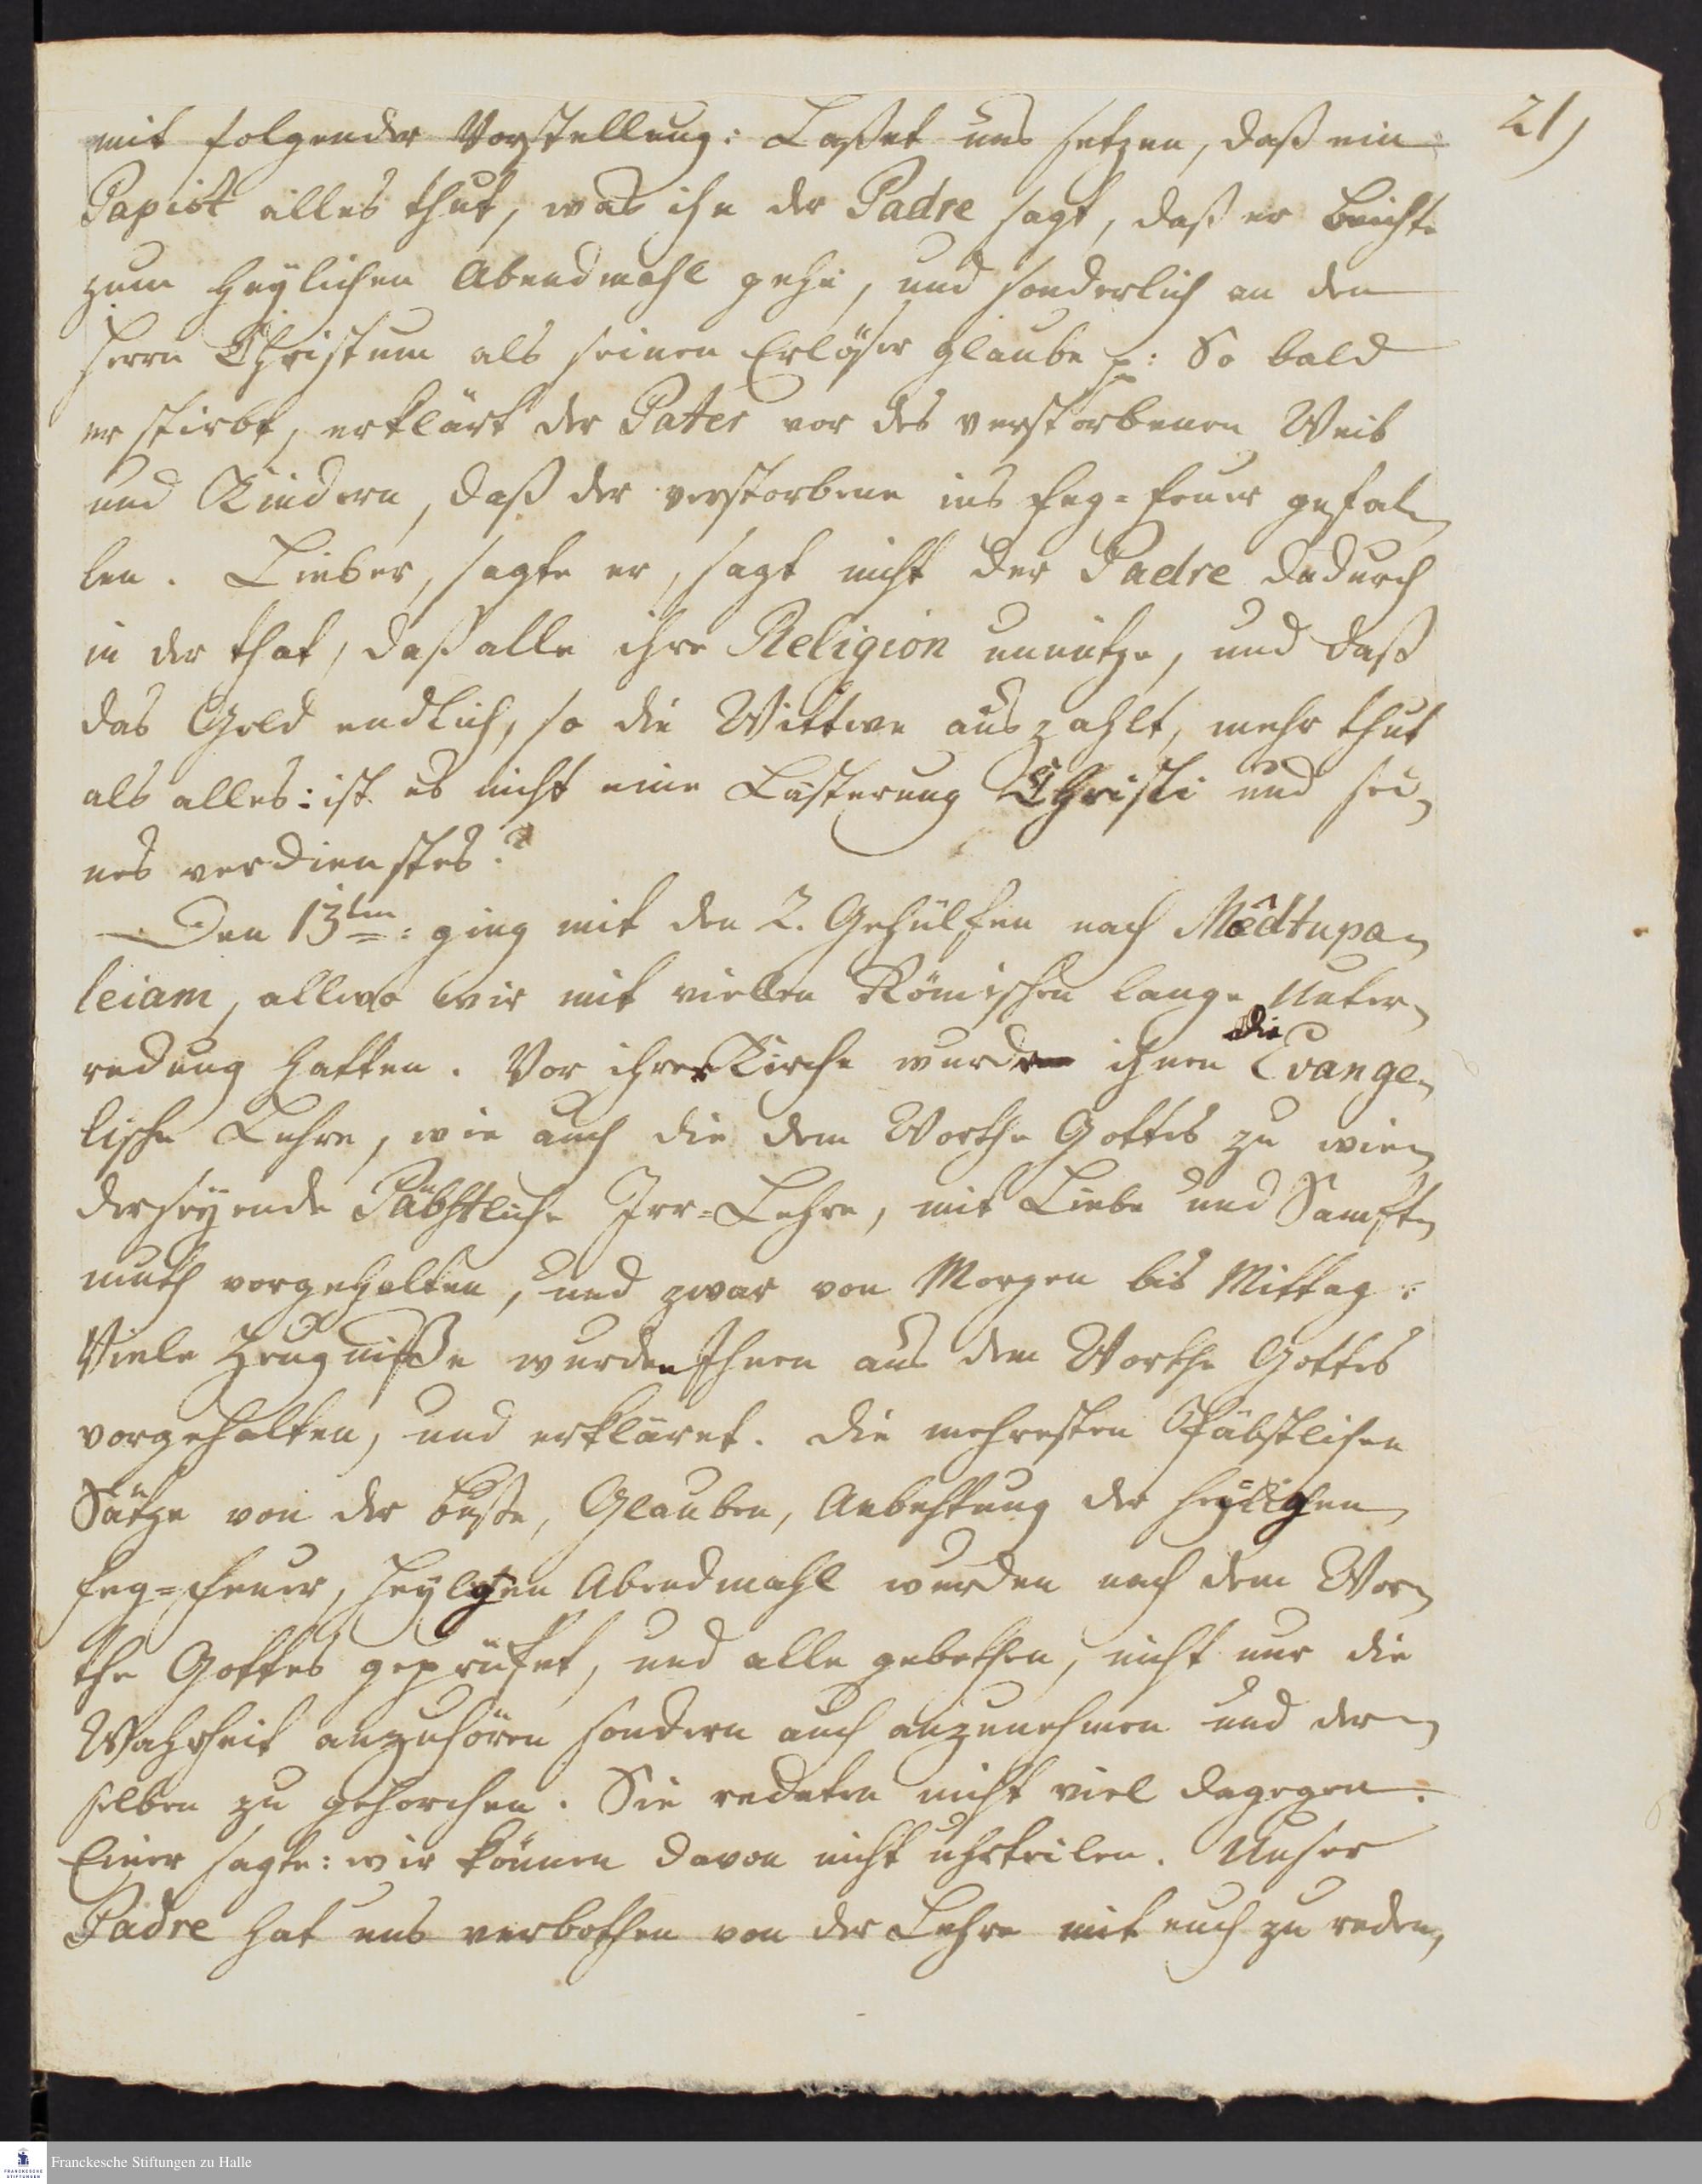 21)
mit folgender Vorstellung: Laßet uns setzen, daß ein
Papist alles thut, was ihn der Padre sagt, daß er beichte
zum Heylichen Abendmahl gehe, und sonderlich an den
Herrn Christum als seinen Erlöser glaube p: So bald
er stirbt, erklärt der Pater vor des verstorbenen Weib
und Kindern, daß der verstorbene ins feg=feuer gefal-
len. Lieber, sagte er, sagt nicht der Padre dadurch
in der that, daß alle ihre Religion unnütze, und daß
das Geld endlich, so die Wittwe auszahlt, mehr thut
als alles: ist es nicht eine Lästerung Christi und sei-
nes verdienstes?
Den 13ten: ging mit den 2. Gehülfen nach Mêdtupa-
leiam, allwo wir mit vielen Römischen lange Unter-
redung hatten. Vor ihrer Kirche wurde ihnen die Evange-
lische Lehre, wie auch die dem Worthe Gottes zu wie-
derseyende Päbstliche Irr=Lehre, mit Liebe und Sanft-
muth vorgehalten, und zwar von Morgen bis Mittag:
Viele Zeugniße wurden Ihnen aus dem Worthe Gottes
vorgehalten, und erkläret. Die mehresten Päbstlichen
Sätze von der buße, Glauben, Anbethung der heyligen
feg=feuer, heylgen Abendmahl wurden nach dem Wor-
the Gottes geprüfet, und alle gebethen, nicht nur die
Wahrheit anzuhören sondern auch anzunehmen und der-
selben zu gehorchen. Sie redeten nicht viel dagegen.
Einer sagte: wir können davon nicht uhrteilen. Unser
Padre hat uns verbothen von der Lehre mit euch zu reden,
Franckesche Stiftungen zu Halle